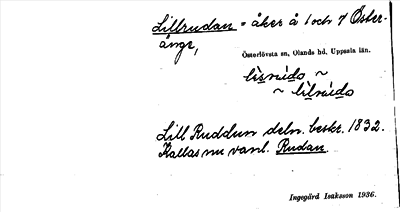 Lillrudan = åker å 1 och 7 Öster-
änge,
Österlövsta sn, Olands hd, Uppsala län.
Lill Ruddun deln. beskr. 1832.
Kallas nu vanl. Rudan.
Ingegärd Isaksson 1936.